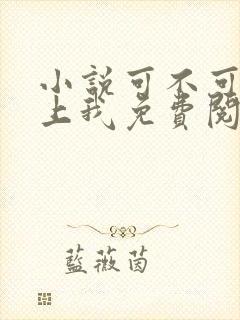 小說可不可
上我免費閱
藍薇茵